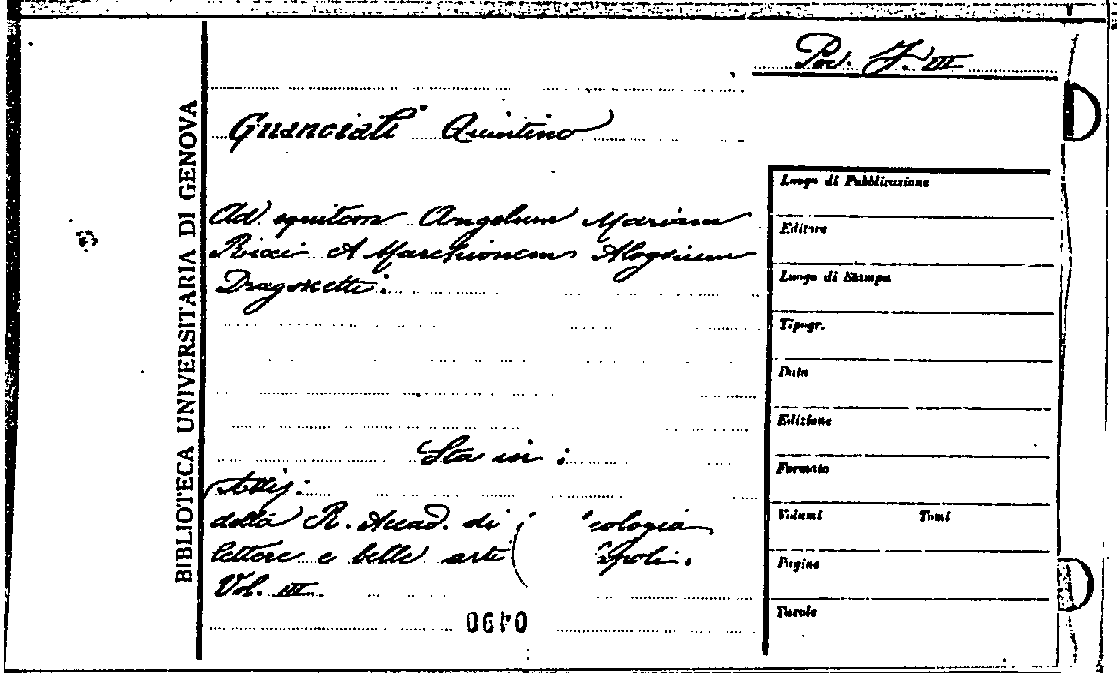 Per. F. III
Guanciali Quintino
Ad equitem Angelum Mariam
Ricci et Marchionem Aloysium
Dragonetti.
Sta in:
Attij:
della R. Accad. di cologia
lettere e belle arti poli.
Vol. III.
BIBLIOTECA UNIVERSITARIA DI GENOVA
Luogo di Pubblicazione
Editore
Luogo di Stampa
Tipogr.
Data
Edizione
Formato
Volumi Tomi
Pagine
Tavole